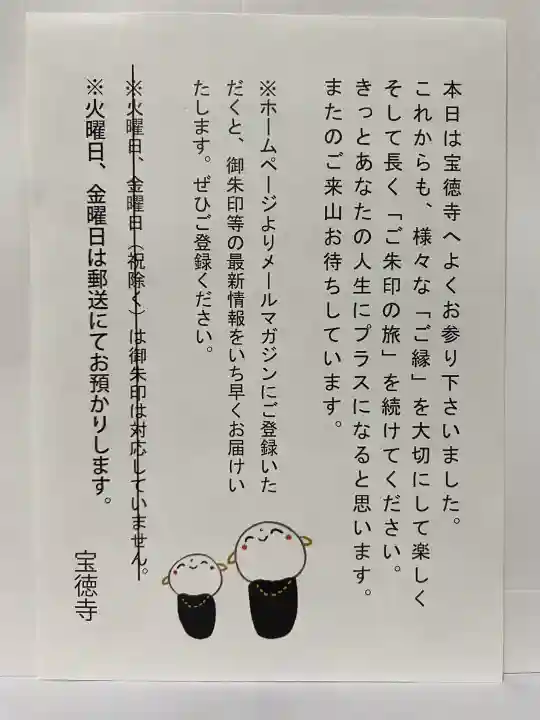 本日は宝徳寺へよくお参り下さいました。
これからも、様々な「ご縁」を大切にして楽しく
そして長く「ご朱印の旅」を続けてください。
きっとあなたの人生にプラスになると思います。
またのご来山お待ちしています。
※ホームページよりメールマガジンにご登録いた
だくと、御朱印等の最新情報をいち早くお届けい
たします。ぜひご登録ください。
※火曜日、金曜日（祝除く）は御朱印は対応していません。
※火曜日、金曜日は郵送にてお預かりします。
宝徳寺